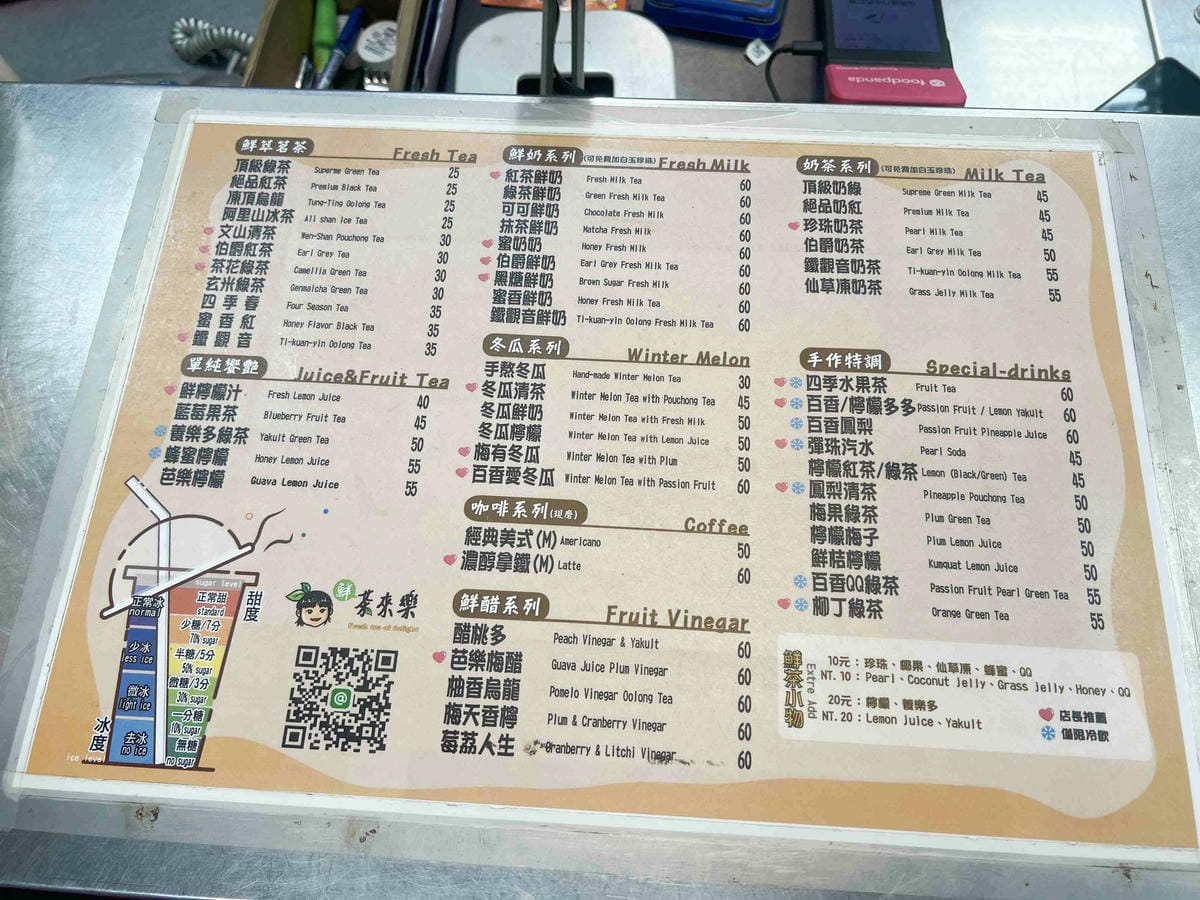 foodpanda
鮮萃茗茶 Fresh Tea
頂級綠茶 Superme Green Tea 25
絕品紅茶 Premium Black Tea 25
凍頂烏龍 Tung-Ting Oolong Tea 25
阿里山冰茶 Ali shan Ice Tea 25
文山清茶 Wen-Shan Pouchong Tea 30
伯爵紅茶 Earl Grey Tea 30
茶花綠茶 Camellia Green Tea 30
玄米綠茶 Genmaicha Green Tea 30
四季春 Four Season Tea 35
蜜香紅 Honey Flavor Black Tea 35
鐵觀音 Ti-kuan-yin Oolong Tea 35
單純饗艷 Juice&Fruit Tea
鮮檸檬汁 Fresh Lemon Juice 40
藍莓果茶 Blueberry Fruit Tea 45
養樂多綠茶 Yakult Green Tea 50
蜂蜜檸檬 Honey Lemon Juice 55
芭樂檸檬 Guava Lemon Juice 55
鮮奶系列 (可免費加白玉珍珠) Fresh Milk
紅茶鮮奶 Fresh Milk Tea 60
綠茶鮮奶 Green Fresh Milk Tea 60
可可鮮奶 Chocolate Fresh Milk 60
抹茶鮮奶 Matcha Fresh Milk 60
蜜奶奶 Honey Fresh Milk 60
伯爵鮮奶 Earl Grey Fresh Milk 60
黑糖鮮奶 Brown Sugar Fresh Milk 60
蜜香鮮奶 Honey Fresh Milk Tea 60
鐵觀音鮮奶 Ti-kuan-yin Oolong Fresh Milk Tea 60
冬瓜系列 Winter Melon
手熬冬瓜 Hand-made Winter Melon Tea 30
冬瓜清茶 Winter Melon Tea with Pouchong Tea 45
冬瓜鮮奶 Winter Melon Tea with Fresh Milk 50
冬瓜檸檬 Winter Melon Tea with Lemon Juice 50
梅有冬瓜 Winter Melon Tea with Plum 50
百香愛冬瓜 Winter Melon Tea with Passion Fruit 60
咖啡系列(現磨) Coffee
經典美式(M) Americano 50
濃醇拿鐵(M) Latte 60
鮮醋系列 Fruit Vinegar
醋桃多 Peach Vinegar & Yakult 60
芭樂梅醋 Guava Juice Plum Vinegar 60
柚香烏龍 Pomelo Vinegar Oolong Tea 60
梅天香檸 Plum & Cranberry Vinegar 60
莓荔人生 Cranberry & Litchi Vinegar 60
奶茶系列 (可免費加白玉珍珠) Milk Tea
頂級奶綠 Supreme Green Milk Tea 45
絕品奶紅 Premium Milk Tea 45
珍珠奶茶 Pearl Milk Tea 45
伯爵奶茶 Earl Grey Milk Tea 50
鐵觀音奶茶 Ti-kuan-yin Oolong Milk Tea 55
仙草凍奶茶 Grass Jelly Milk Tea 55
手作特調 Special-drinks
四季水果茶 Fruit Tea 60
百香/檸檬多多 Passion Fruit / Lemon Yakult 60
百香鳳梨 Passion Fruit Pineapple Juice 60
彈珠汽水 Pearl Soda 45
檸檬紅茶/綠茶 Lemon (Black/Green) Tea 45
鳳梨清茶 Pineapple Pouchong Tea 50
梅果綠茶 Plum Green Tea 50
檸檬梅子 Plum Lemon Juice 50
鮮桔檸檬 Kumquat Lemon Juice 50
百香QQ綠茶 Passion Fruit Pearl Green Tea 55
柳丁綠茶 Orange Green Tea 55
鮮茶小物 Extre Add
10元：珍珠、椰果、仙草凍、蜂蜜、QQ
NT. 10：Pearl、Coconut Jelly、Grass Jelly、Honey、QQ
20元：檸檬、養樂多
NT. 20：Lemon Juice、Yakult
店長推薦
僅限冷飲
鮮茶來樂
Fresh tea of delight
sugar level
甜度
正常甜 standard
少糖/7分 70% sugar
半糖/5分 50% sugar
微糖/3分 30% sugar
一分糖 10% sugar
無糖 no sugar
正常冰 normal
少冰 less ice
微冰 light ice
去冰 no ice
冰度
ice level